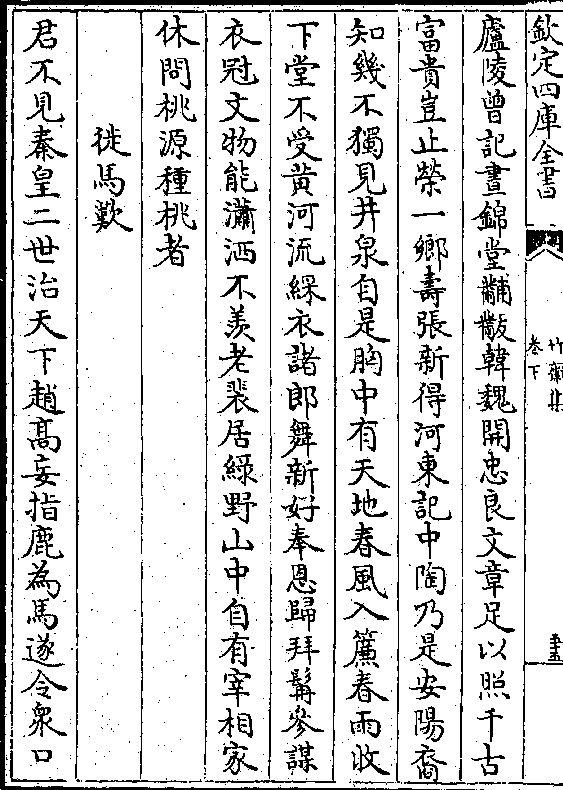 欽定四庫全書
竹齋集
卷下
廬陵曾記晝錦堂黼黻韓魏開忠良文章足以照千古
富貴豈止榮一鄉壽張新得河東記中陶乃是安陽裔
知幾不獨見井泉自是胸中有天地春風入簾春雨收
下堂不受黃河流綵衣諸郎舞新好奉恩歸拜髯參謀
衣冠文物能瀟洒不羨老裴居綠野山中自有宰相家
休問桃源種桃者
徙馬歎
君不見秦皇二世治天下趙高妄指鹿為馬遂令衆口